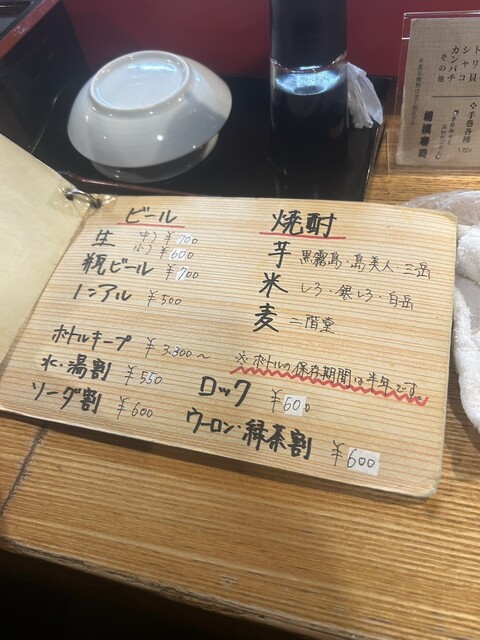 ビール
生 中) ¥700
小) ¥600
瓶ビール ¥700
ノンアル ¥500
ボトルキープ ¥3,300〜
水・湯割 ¥550
ソーダ割 ¥600
焼酎
芋 黒霧島・島美人・三岳
米 しろ・銀しろ・白岳
麦 二階堂
※ボトルの保存期間は半年です。
ロック ¥600
ウーロン・緑茶割 ¥600
トリ貝
シャコ
カンパチ
その他
手巻各種